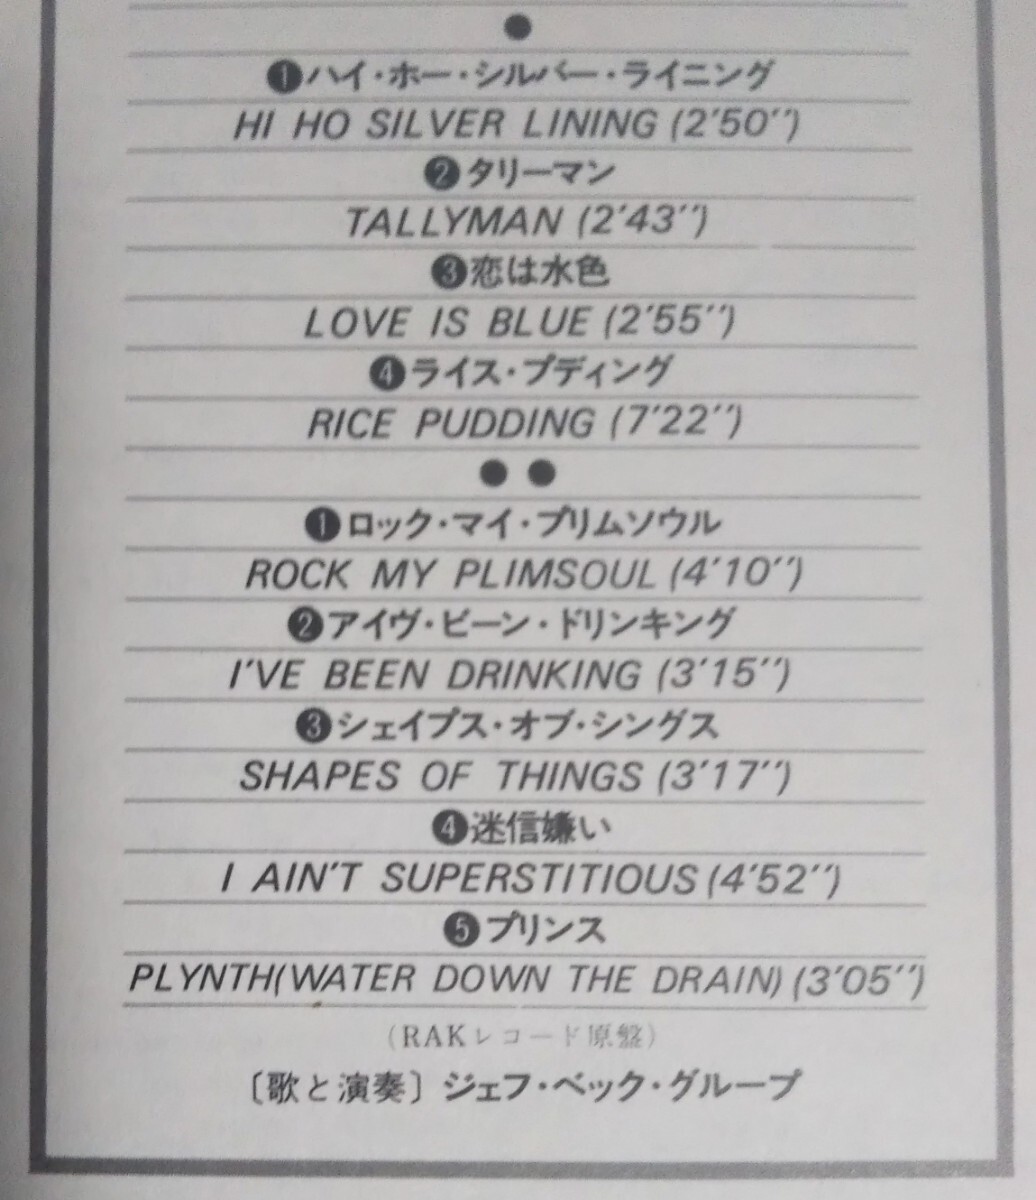 ●
❶ハイ・ホー・シルバー・ライニング
HI HO SILVER LINING (2'50'')
❷タリーマン
TALLYMAN (2'43'')
❸恋は水色
LOVE IS BLUE (2'55'')
❹ライス・プディング
RICE PUDDING (7'22'')
● ●
❶ロック・マイ・プリムソウル
ROCK MY PLIMSOUL (4'10'')
❷アイヴ・ビーン・ドリンキング
I'VE BEEN DRINKING (3'15'')
❸シェイプス・オブ・シングス
SHAPES OF THINGS (3'17'')
❹迷信嫌い
I AIN'T SUPERSTITIOUS (4'52'')
❺プリンス
PLYNTH(WATER DOWN THE DRAIN) (3'05'')
(RAKレコード原盤)
〔歌と演奏〕ジェフ・ベック・グループ